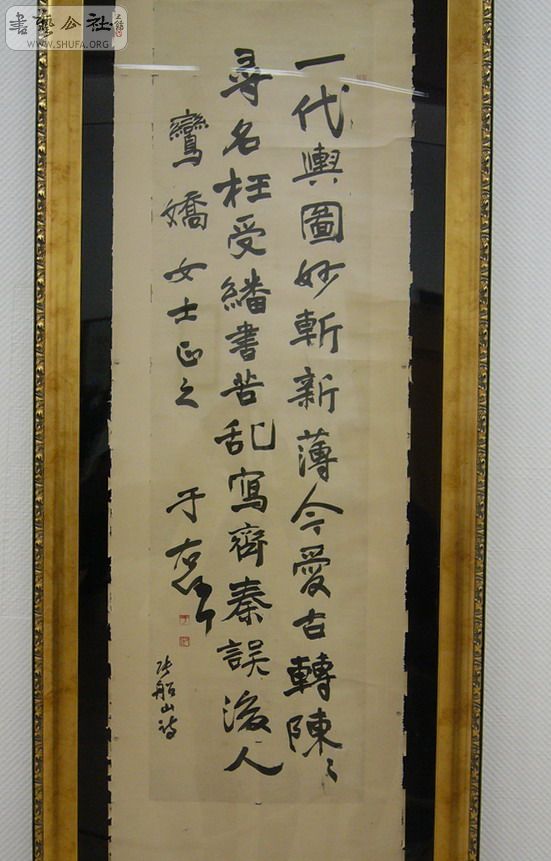 書藝公社
www.SHUFA.ORG
一代輿圖妙斬新薄今愛古轉陳〻
尋名枉受繙書苦乱寫齊秦誤後人
鸞嬌女士正之 于右任
張船山詩